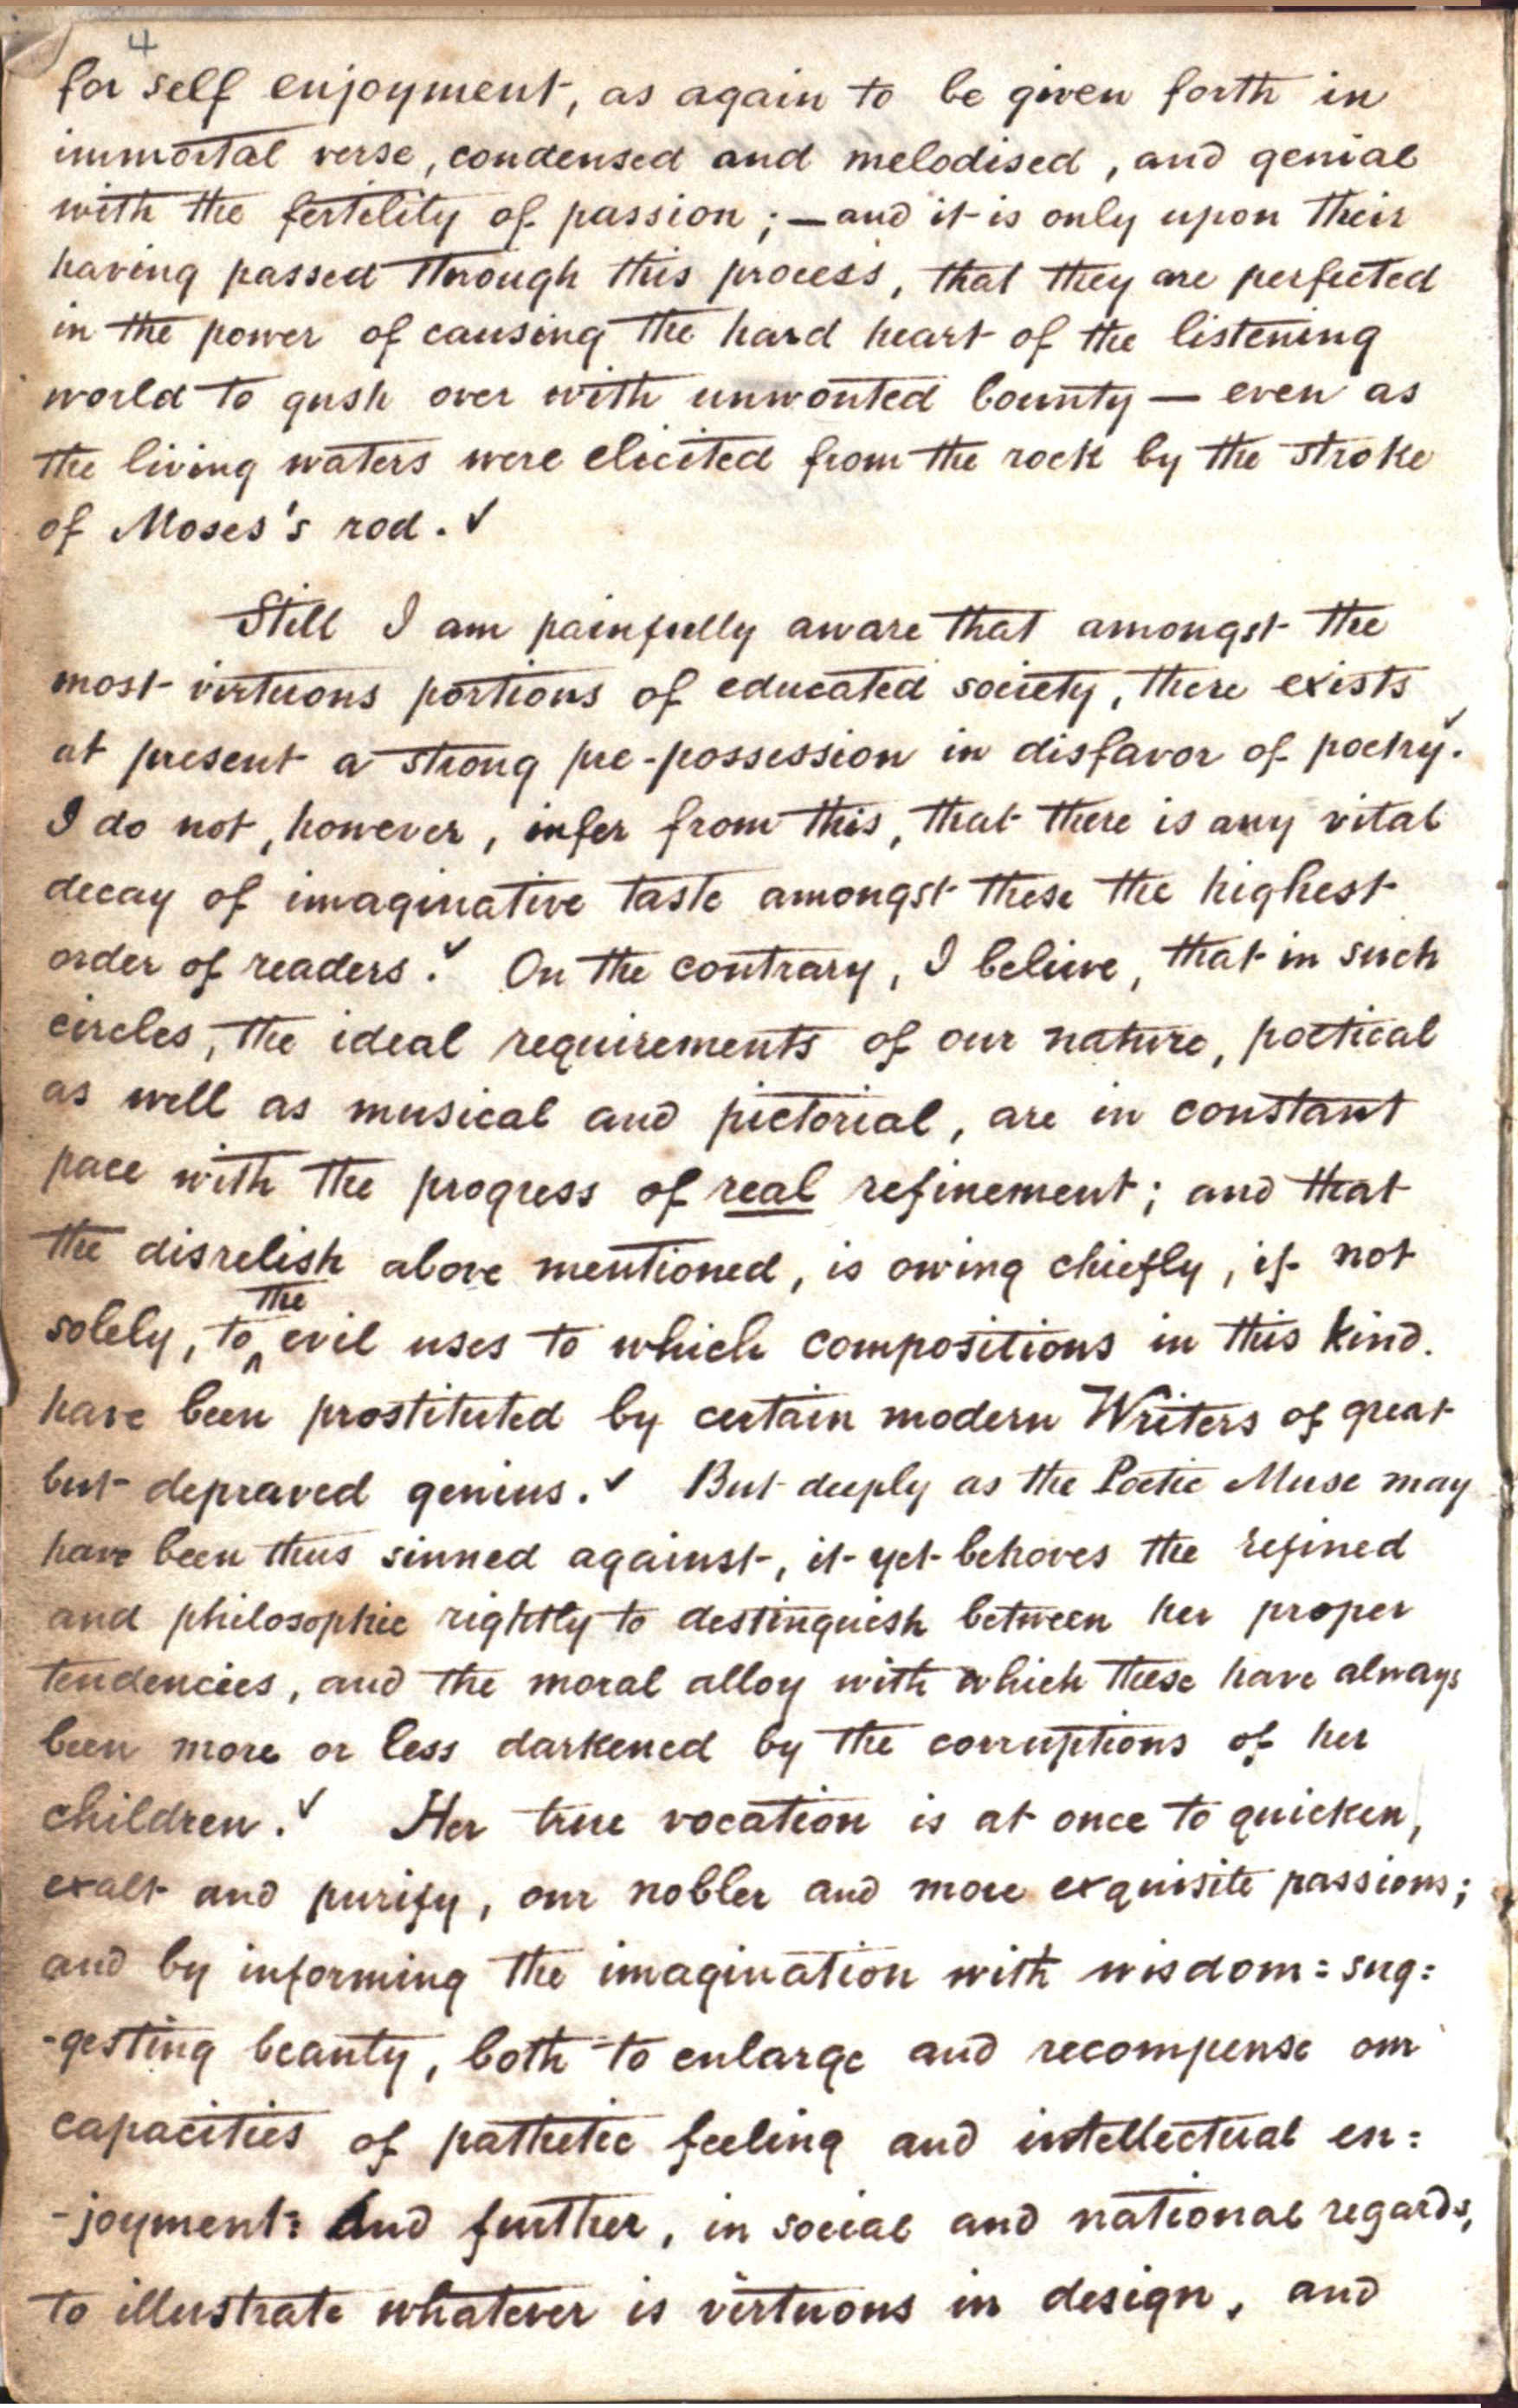 4
for self enjoyment, as again to be given forth in
immortal verse, condensed and melodised, and genial
with the fertility of passion; — and it is only upon their
having passed through this process, that they are perfected
in the power of causing the hard heart of the listening
world to gush over with unwonted bounty — even as
the living waters were elicited from the rock by the stroke
of Moses's rod. ✓
Still I am painfully aware that amongst the
most virtuous portions of educated society, there exists
at present a strong pre-possession in disfavor of poetry. ✓
I do not, however, infer from this, that there is any vital
decay of imaginative taste amongst these the highest
order of readers. ✓ On the contrary, I believe, that in such
circles, the ideal requirements of our nature, poetical
as well as musical and pictorial, are in constant
pace with the progress of real refinement; and that
the disrelish above mentioned, is owing chiefly, if not
solely, to ^the evil uses to which compositions in this kind.
have been prostituted by certain modern Writers of great
but depraved genius. ✓ But deeply as the Poetic Muse may
have been thus sinned against, it yet behoves the refined
and philosophic rightly to destinquish between her proper
tendencies, and the moral alloy with which these have always
been more or less darkened by the corruptions of her
children. ✓ Her true vocation is at once to quicken,
exalt and purify, our nobler and more exquisite passions;
and by informing the imagination with wisdom=sug=
-gesting beauty, both to enlarge and recompense our
capacities of pathetic feeling and intellectual en=
-joyment: And further, in social and national regards,
to illustrate whatever is virtuous in design, and